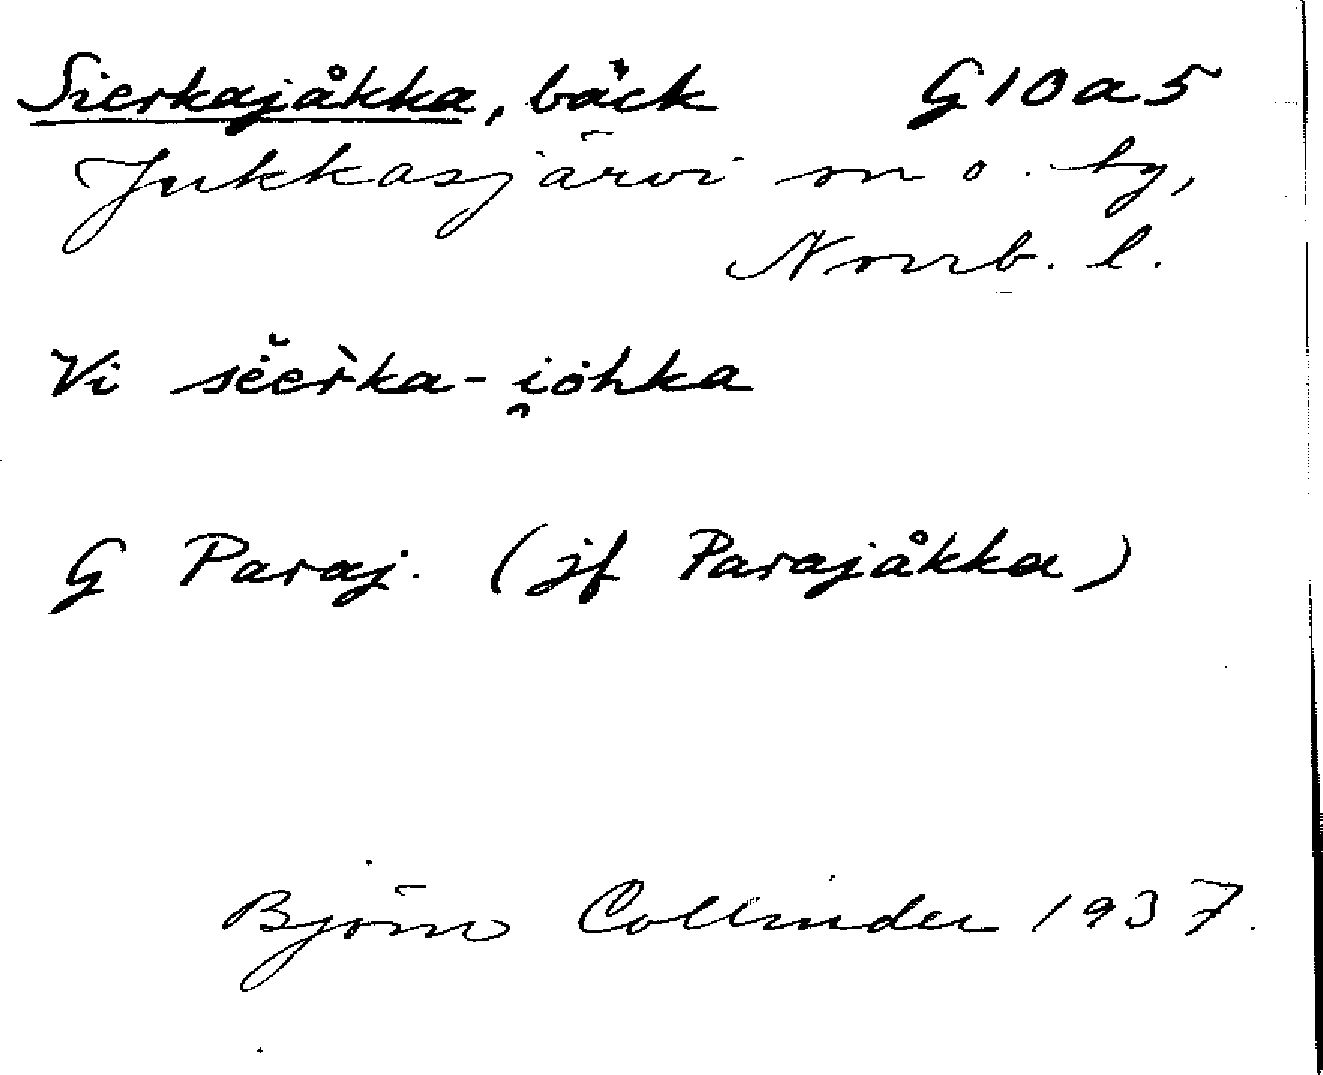 Sierkajåkka, bäck G10a5
Jukkasjärvi sn o. by,
Norrb. l.
Vi sĕer̀ka-i̯ohka
G Paraj. (jf Parajåkka)
Björn Collinder 1937.